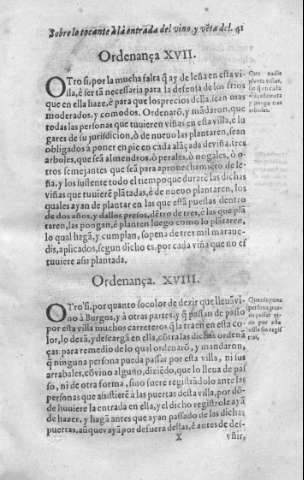 Sobre lo tocante a la entrada del vino, y vẽta del. 41
Ordenança XVII.
OTro si, por la mucha falta q̃ ay de leña en esta vi
lla, è ser tã necessaria para la defensa de los frios
que en ella haze, è para que los precios della sean mas
moderados, y comodos. Ordenarõ, y mãdaron, que
todas las personas que tuuieren viñas en esta villa, è lu
gares de su jurisdicion, ò de nueuo las plantaren, sean
obligados à poner en pie en cada alãçada de viña, tres
arboles, que seã almendros, ò perales, ò nogales, ò o-
tros semejantes que seã para aprouechamiẽto de le-
ña, y los sustente todo el tiempo que durarẽ las dichas
viñas que tuuierẽ plãtadas, è de nueuo plantaren, los
quales ayan de plantar en las que estã puestas dentro
de dos años, y dallos presos, dẽtro de tres, è las que plã
taren, las pongan, è planten luego como lo plãtaren,
lo qual hagã, y cumplan, so pena de tres mil maraue-
dis, aplicados, segun dicho es, por cada viña que no es
tuuiere assi plantada.
Ordenança. XVIII.
OTro si, por quanto so color de dezir que lleuã vi
no à Burgos, y à otras partes, y q̃ passan de passo
por esta villa muchos carreteros q̃ la traen en esta co-
lor, lo dexã, y descargã en ella, cõtra las dichas ordenã
ças: para remedio de lo qual ordenarõ, y mandaron,
q̃ ninguna persona pueda passar por esta villa, ni sus
arrabales, cõ vino alguno, diziẽdo, que lo lleua de pas
so, ni de otra forma, sino fuere registrãdolo ante las
personas que assistierẽ à las puertas desta villa, por dõ-
de huuiere la entrada en ella, y el dicho registro le ayã
de hazer, y hagã antes que ayan passado de las dichas
puertas, aũque vayã por defuera dellas, è antes de des-
X
vñir,
Que nadie
plante viñas,
sin
arboles.
Que
persona
passar
por
villa sin regis
trar.